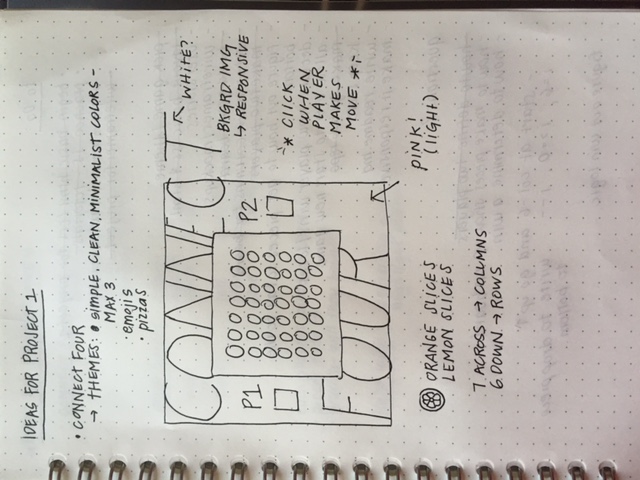 IDEAS FOR PROJECT 1
• CONNECT FOUR
→ THEMES: • simple, CLEAN, MINIMALIST COLORS -
MAX 3
• emojis
• pizzas
CONNECT
WHITE?
BKGRD IMG
↳ RESPONSIVE
P1
P2
* CLICK
WHEN
PLAYER
MAKES
MOVE *
FOUR
PINK!
(LIGHT)
ORANGE SLICES
LEMON SLICES
7 ACROSS → COLUMNS
6 DOWN → ROWS